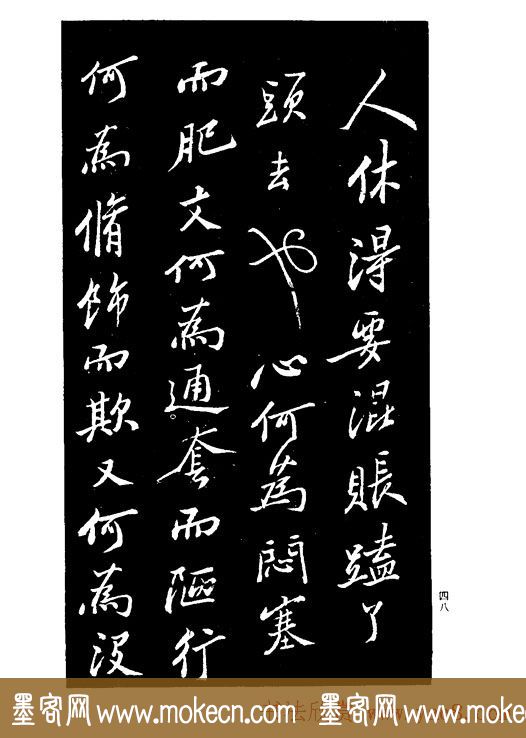 人休得要混賬磕了
頭去也心何為悶塞
而肥文何為通套而陋行
何為脩飾而欺又何為没
四八
墨客网 www.mokecn.com 墨客网 www.mokecn.com